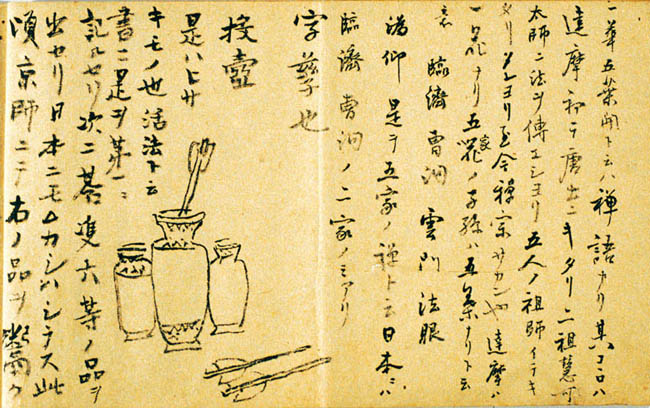 一華五葉開ト云ハ禅ノ語ナリ其コヽロハ
達摩初テ唐土ニキタリ二祖慧可
太師ニ法ヲ傳エシヨリ五人ノ祖師イテキ
タリソレヨリ至今禅宗サカン也達摩ハ
一花ナリ五家ノ子孫ハ五葉ナリト云
意 臨濟 曹洞 雲門 法眼
潙仰 是テ五家ノ禅ト云日本ニハ
臨濟 曹洞ノ二家ノミアリ
字擧也
投壺
是ハトサ
キモノ也活法ト云
書ニ是ヲ第一ニ
記ルセリ次ニ碁雙六等ノ品ヲ
出セリ日本ニモムカシハシテス此
頃京師ニテ右ノ品ヲ鬻ク